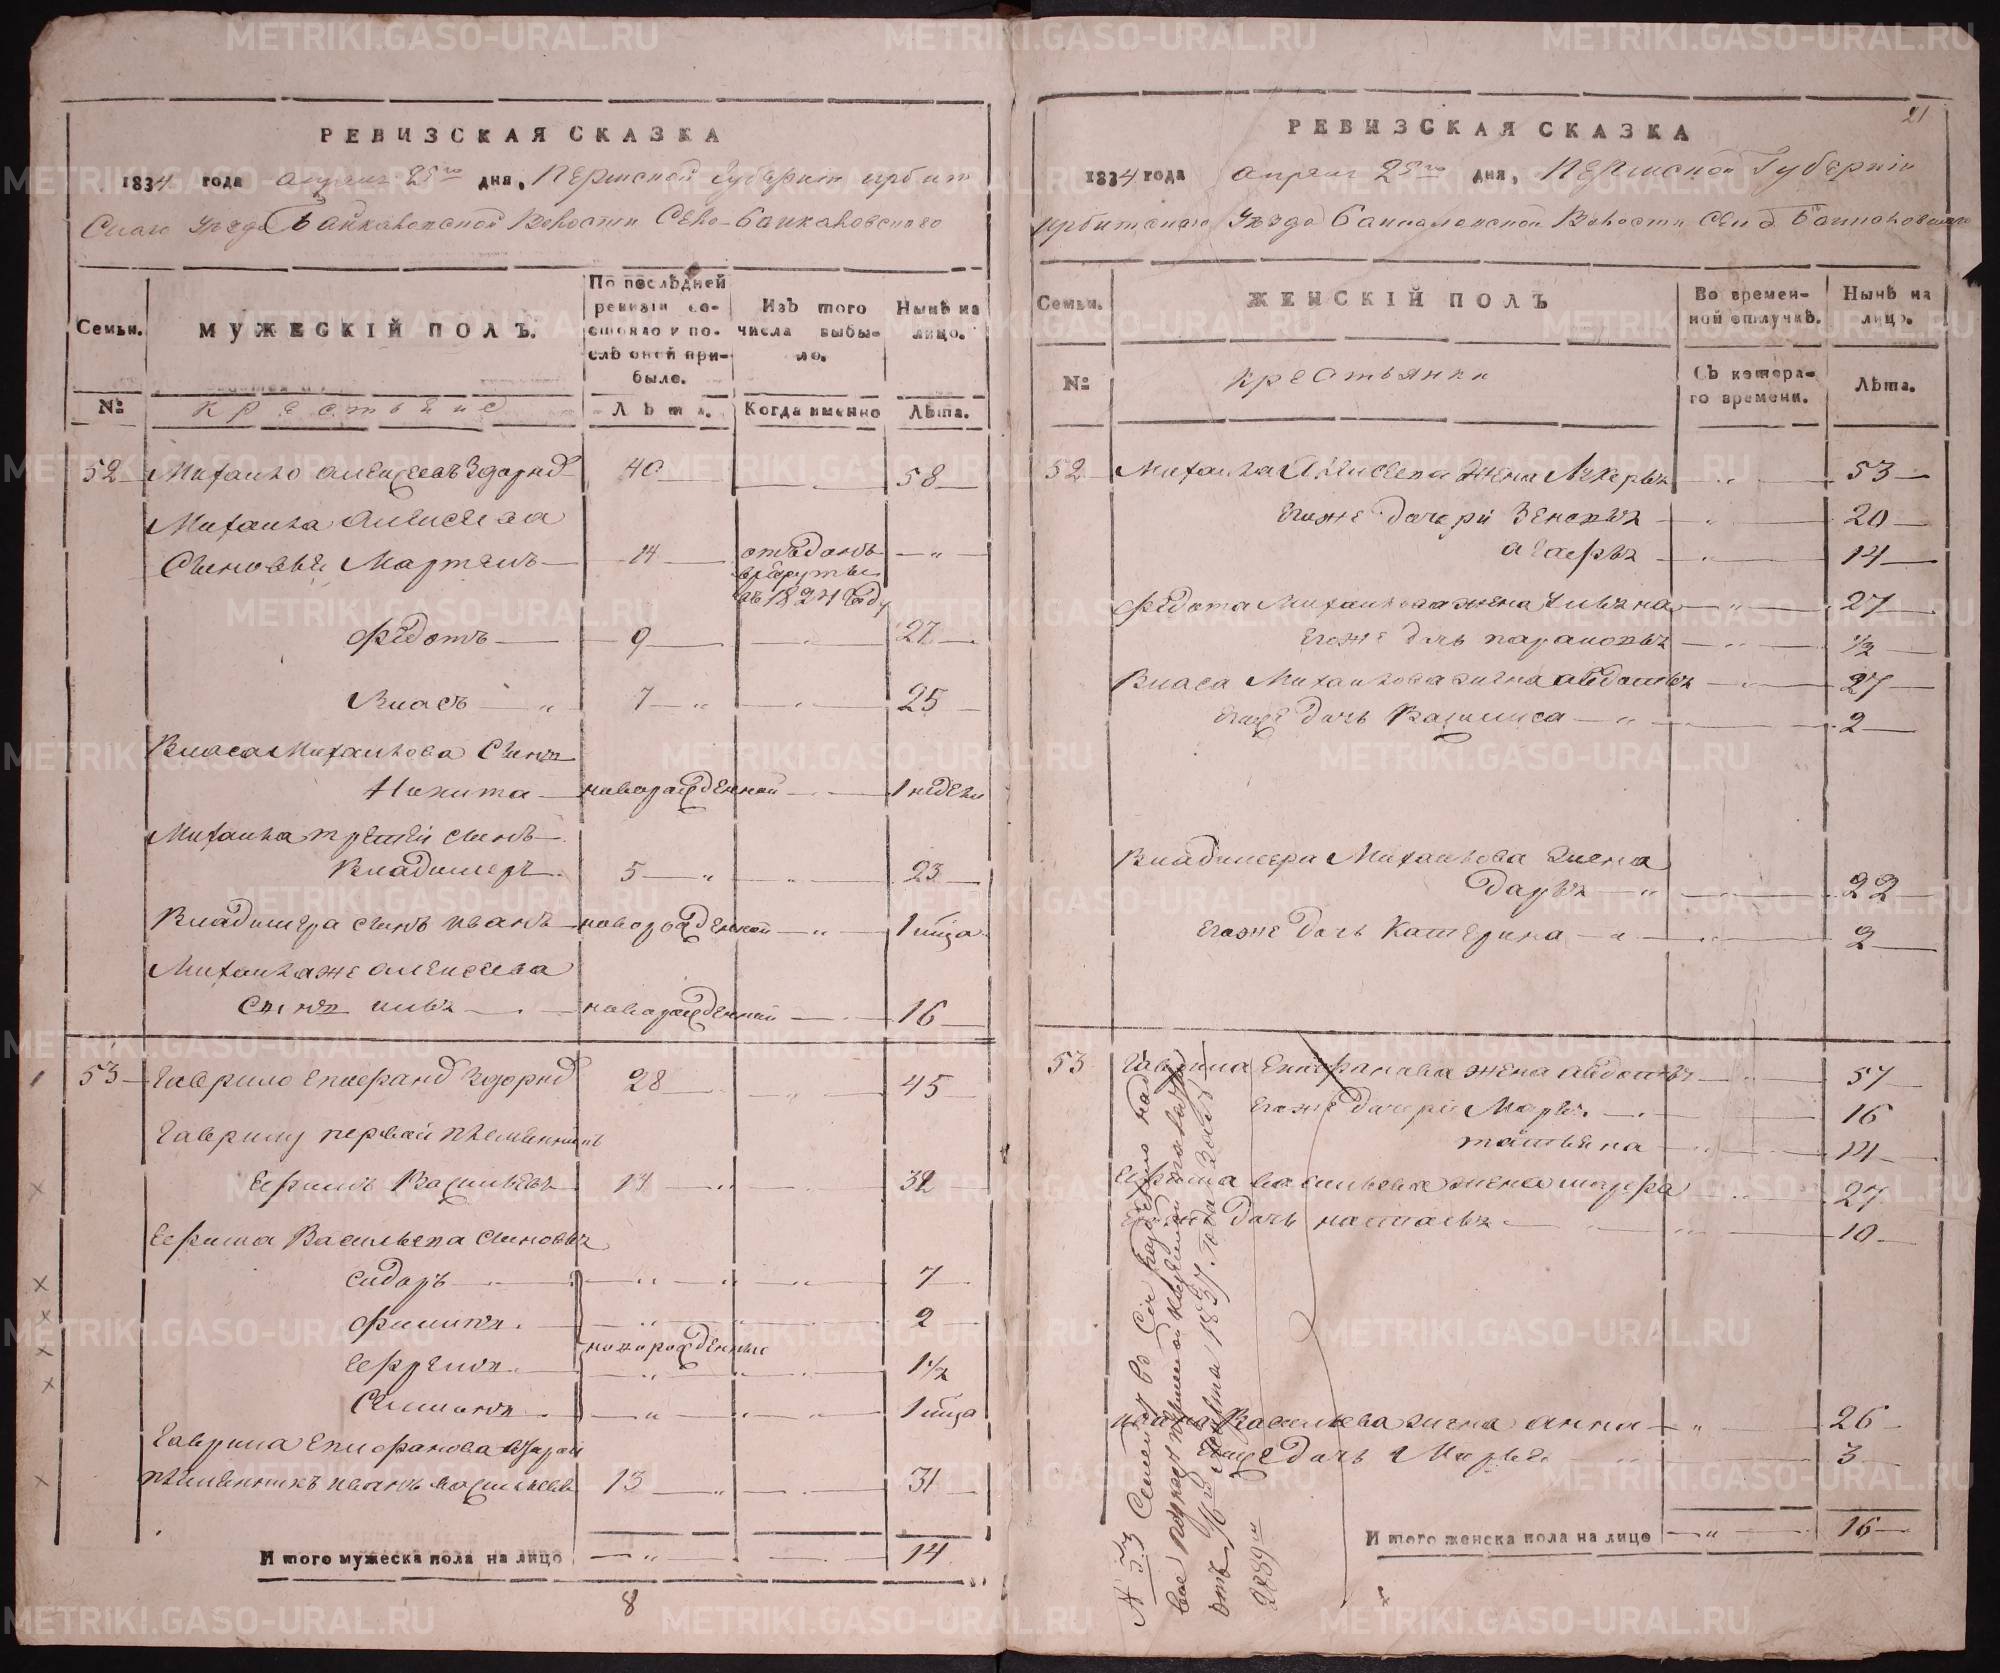 РЕВИЗСКАЯ СКАЗКА
1834 года апреля 25го дня, Пермской Губернии ирбит
Скаго Уезда Баикаловской Волости Село-Баикаловскаго
Семьи.
МУЖЕСКІЙ ПОЛЪ.
По послѣдней ревизіи состояло и послѣ оной прибыло.
Изъ того числа выбыло.
Нынѣ на лицо.
№
крестьяне
Лѣта.
Когда именно
Лѣта.
52 Михаило алексеевъ 40 58
Михаила алексеева
Сыновья Мартынъ 14 отъданъ
врекруты
въ 1824 году
Федотъ 9 27
Власъ 7 25
Власа Михаилова Сынъ
Никита новорожденной 1 недели
Михаила третей сынъ
Владимеръ 5 23
Владимера сынъ иванъ новорожденной 1 мца
Михаила же алексеева
Сынъ илья новорожденной 16
53 Гаврило 28 45
Гаврилу первой племянникъ
Ефимъ Васильевъ 14 32
Ефима Васильева сыновья
Сидоръ 7
Филипъ 2
новорожденные
Ефремъ 1 1/2
Симионъ 1 мца
Гаврила Епифанова второй
племянникъ иванъ васильевъ 13 31
Итого мужеска пола на лицо 14
8
21
РЕВИЗСКАЯ СКАЗКА
1834 года апреля 25го дня, Пермской Губерніи
ирбитскаго Уезда Баикаловской Волости Села Баикаловскаго
Семьи.
ЖЕНСКІЙ ПОЛЪ
Во временной отлучкѣ.
Нынѣ на лицо.
№
крестьянки
Съ котораго времени.
Лѣта.
52 Михаила Алексеева жена Лукерья 53
Егоже дочери Зеновья 20
агафья 14
федота Михаилова жена Ульяна 27
Егоже дочь парасковья 1/2
Власа Михаилова жена авдотья 27
Егоже дочь Василиса 2
Владимера Михаилова жена
Дарья 22
Егоже дочь Катерина 2
53 Гаврила Епифанова жена авдотья 57
Егоже дочери Марья 16
татьяна 14
Ефима васильева жена марфа 27
дочь настасья 10
ивана Васильева жена анна 26
Егоже дочь Марья 3
Итого женска пола на лицо 16
№ 53 Семейство Сіе
1837. Года